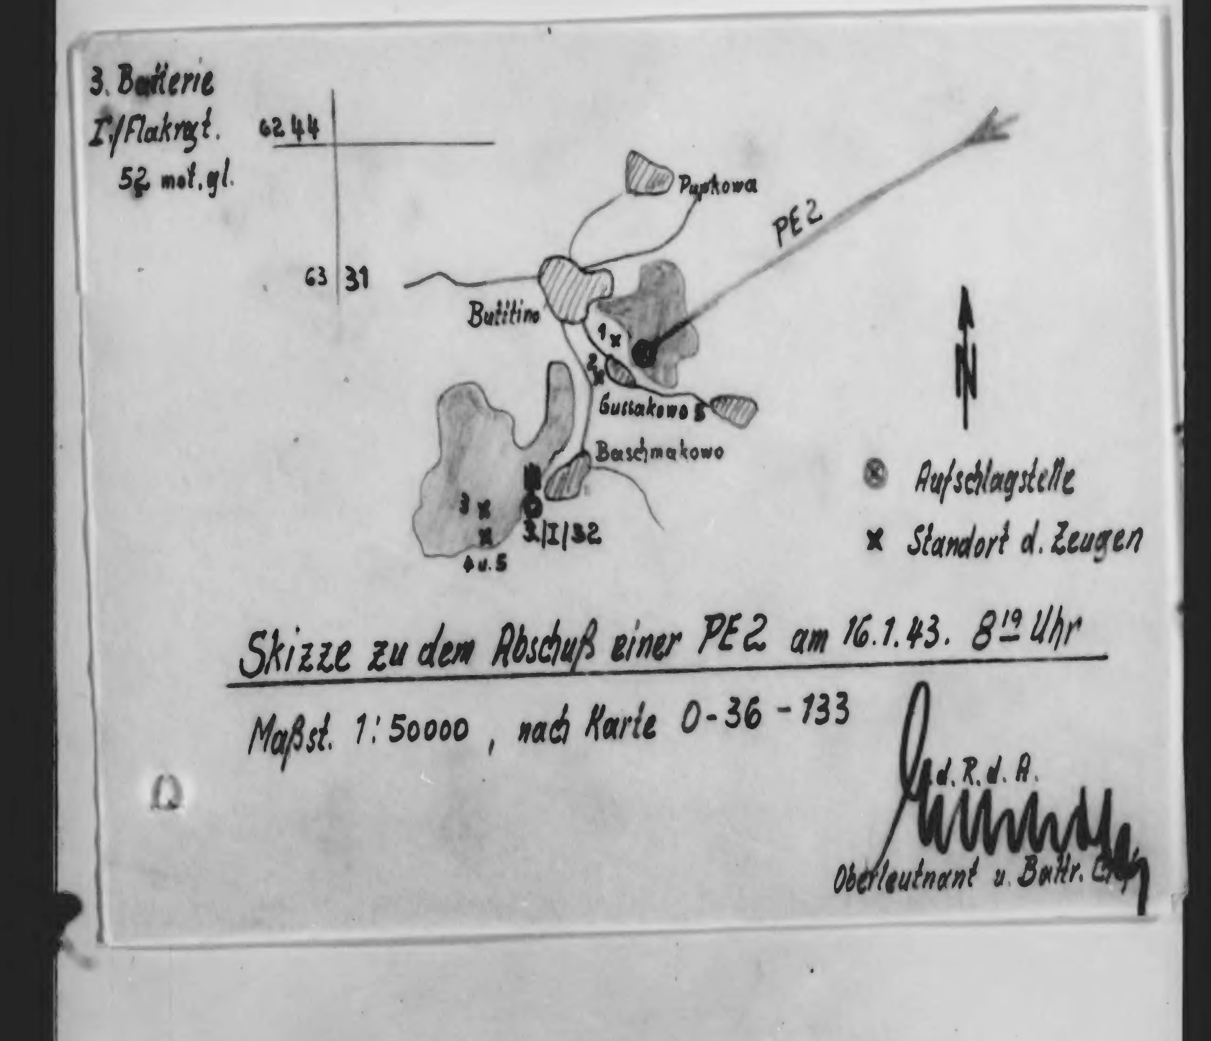 3. Batterie
I./Flakrgt.
52 mot. gl.
62 44
63 31
Pupkowa
PE2
Butitino
1
2
Gussakowo
Baschmakowo
N
3
4 u. 5
3/I/52
Aufschlagstelle
Standort d. Zeugen
Skizze zu dem Abschuß einer PE2 am 16.1.43. 8¹⁹ Uhr
Maßst. 1:50000, nach Karte O-36-133
d. R. d. A.
Oberleutnant u. Battr. Chef